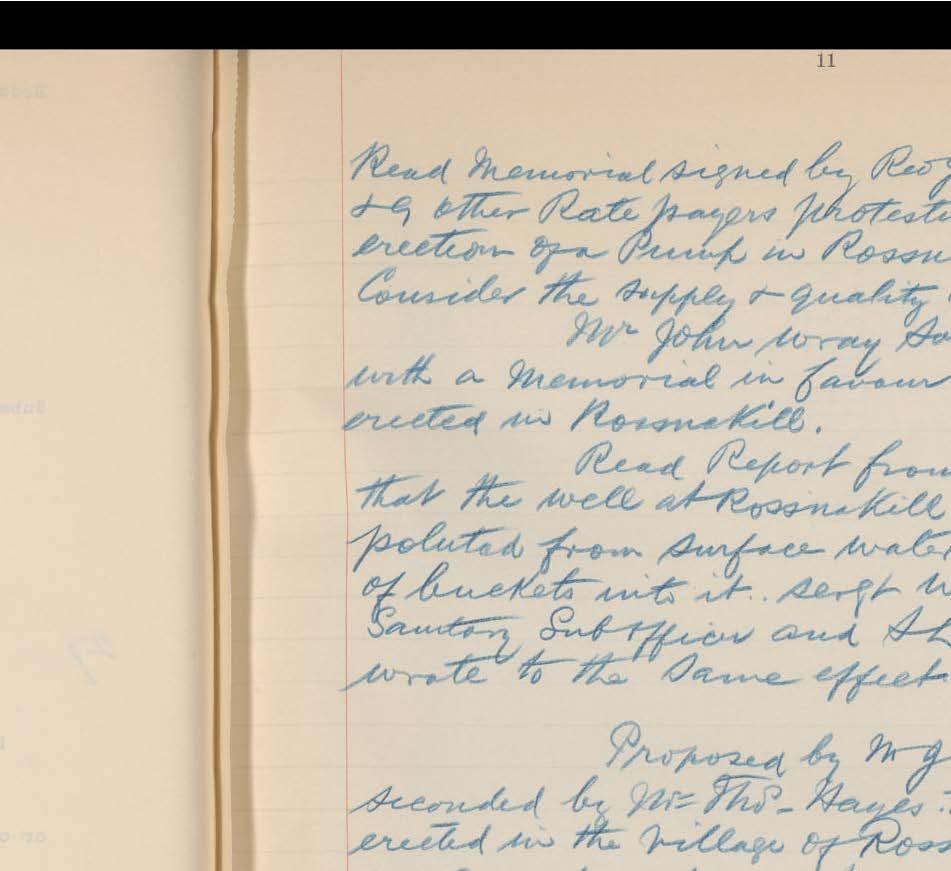 11
Read Memorial signed by Rev
& 9 other Rate payers protest
erection of a Pump in Rossn
Consider the supply & quality
Mr John Wray
with a Memorial in favour
erected in Rossnakill.
Read Report from
that the well at Rossnakill
poluted from surface water
of buckets into it. Sergt
Sanitary Sub Officer and
wrote to the same effect
Proposed by Mr J
seconded by Mr Thos Hayes
erected in the village of Ross